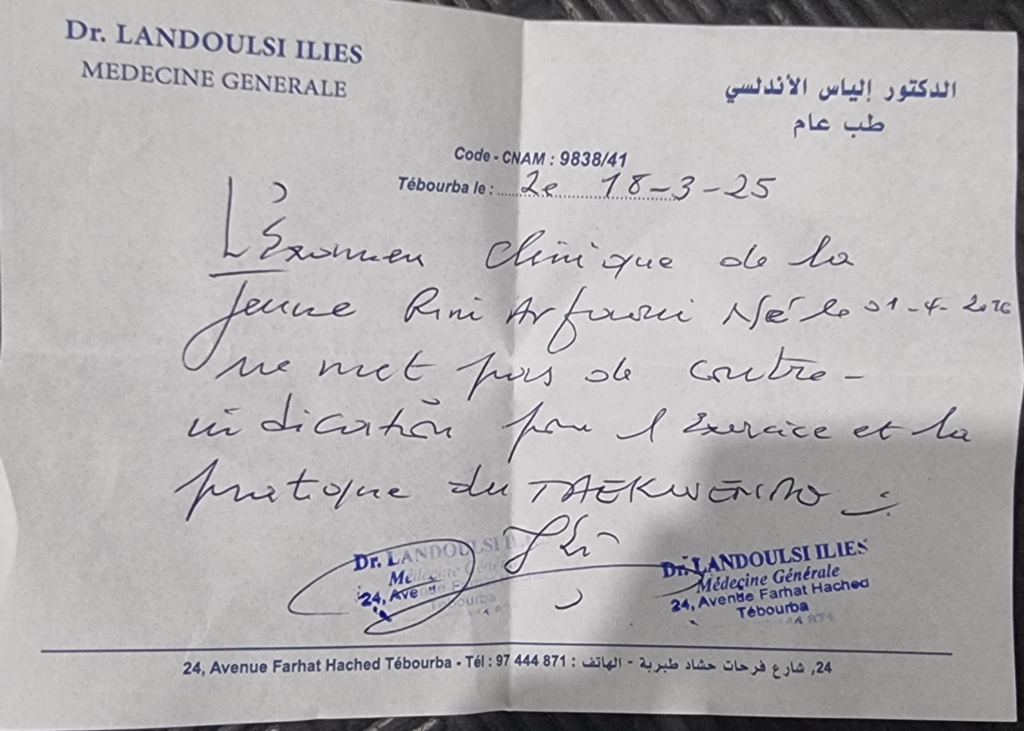 Dr. LANDOULSI ILIES
MEDECINE GENERALE
الدكتور إلياس الأندلسي
طب عام
Code - CNAM : 9838/41
Tébourba le : 2e 18-3-25
L'Examen clinique de la
jeune Rim Arfaoui Né le 01-4-2016
ne met pas de contre-
indication pour l'Exercice et la
pratique du TAEKWENDO
Dr. LANDOULSI ILIES
Médecine Générale
24, Avenue Farhat Hached
Tébourba
Dr. LANDOULSI ILIES
Médecine Générale
24, Avenue Farhat Hached
Tébourba
24, Avenue Farhat Hached Tébourba - Tél : 97 444 871 : 24, شارع فرحات حشاد طبربة - الهاتف